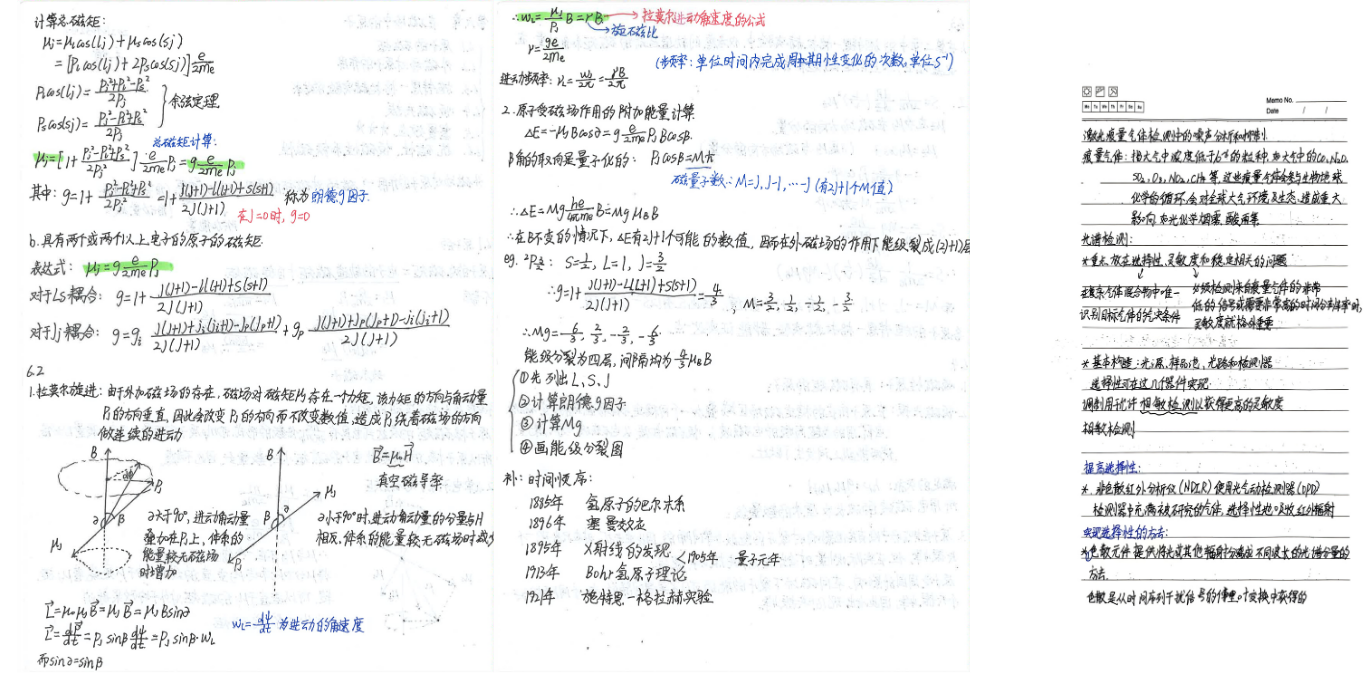 计算总磁矩:
μj=μlcos(lj)+μscos(sj)
=[Plcos(lj)+2Pscos(sj)]e/2me
Plcos(lj)=(Pj²+Pl²-Ps²)/2Pj
Pscos(sj)=(Pj²-Pl²+Ps²)/2Pj
}余弦定理
总磁矩计算:
μj=[1+(Pj²-Pl²+Ps²)/2Pj²]·e/2me Pj=g e/2me Pj
其中: g=1+(Pj²-Pl²+Ps²)/2Pj²=1+(j(j+1)-l(l+1)+s(s+1))/2j(j+1) 称为朗德g因子.
在J=0时, g=0
b.具有两个或两个以上电子的原子的磁矩.
表达式: μJ=g e/2me PJ
对于LS耦合: g=1+(J(J+1)-L(L+1)+S(S+1))/2J(J+1)
对于Jj耦合: g=gi (J(J+1)+ji(ji+1)-Jp(Jp+1))/2J(J+1)+gp (J(J+1)+Jp(Jp+1)-ji(ji+1))/2J(J+1)
6.2
1.拉莫尔旋进: 由于外加磁场的存在, 磁场对磁矩存在一个力矩, 该力矩的方向与角动量
PJ的方向垂直, 因此会改变PJ的方向而不改变数值, 造成PJ绕着磁场的方向
做连续的进动
B B B=μ0H
dφ PJ 真空磁导率
μJ
α β β α
α大于90°, 进动角动量
叠加在PJ上, 体系的
能量较无磁场
时增加
α小于90°时, 进动角动量的分量与H
相反, 体系的能量较无磁场时减少
μJ PJ
L=μ0μJB=μJB=μJBsinα
L=dP/dt=PJsinβ dφ/dt=PJsinβ·ωL
ωL=dφ/dt为进动的角速度
而sinα=sinβ
∴ωL=μJ/PJ B=γB → 拉莫尔进动角速度的公式
旋磁比
γ=ge/2me
(频率: 单位时间内完成周期性变化的次数, 单位s⁻¹)
进动频率: νL=ωL/2π=γB/2π
2.原子受磁场作用的附加能量计算
ΔE=-μJBcosα=g e/2me PJBcosβ
β角的取向是量子化的: PJcosβ=Mħ
磁量子数: M=J, J-1, …-J (有2J+1个M值)
∴ΔE=Mg he/4πme B=MgμBB
∴在B不变的情况下, ΔE有2J+1个可能的数值, 因而在外磁场的作用下能级裂成(2J+1)层
eg. ²P3/2: S=1/2, L=1, J=3/2
∴g=1+(J(J+1)-L(L+1)+S(S+1))/2J(J+1)=4/3, M=3/2, 1/2, -1/2, -3/2
∴Mg=6/3, 2/3, -2/3, -6/3
能级分裂为四层, 间隔均为4/3μBB
①先列出L、S、J
②计算朗德g因子
③计算Mg
④画能级分裂图
补: 时间顺序:
1885年 氢原子的巴尔末系
1896年 塞曼效应
1895年 X射线的发现
1905年 量子元年
1913年 Bohr氢原子理论
1921年 施特恩-格拉赫实验
Memo No.
Mo Tu We Th Fr Sa Su
Date / /
激光痕量气体检测中的噪声分析和抑制.
痕量气体: 指大气中浓度低于 的粒种, 如大气中的CO, N2O,
SO2, O3, NO2, CH4等, 这些痕量气体会参与生物地球
化学的循环, 会对全球大气环境及生态, 造成重大
影响, 如光化学烟雾, 酸雨等.
光谱检测:
*重点放在选择性, 灵敏度和稳定相关的问题
在复杂气体混合物中唯一
识别目标气体的先决条件
*基本构造: 光源, 样品池, 光路和检测器
选择性可在这几个器件实现
调制用于允许相敏检测以获得更高的灵敏度
相敏检测!
提高选择性:
*非色散红外分析仪(NDIR)使用光气动检测器(OPD)
检测器中充满被研究的气体, 选择性地吸收红外辐射
实现选择性的方法:
*色散元件提供将光或其他辐射分离成不同波长的光谱分量的
方法.